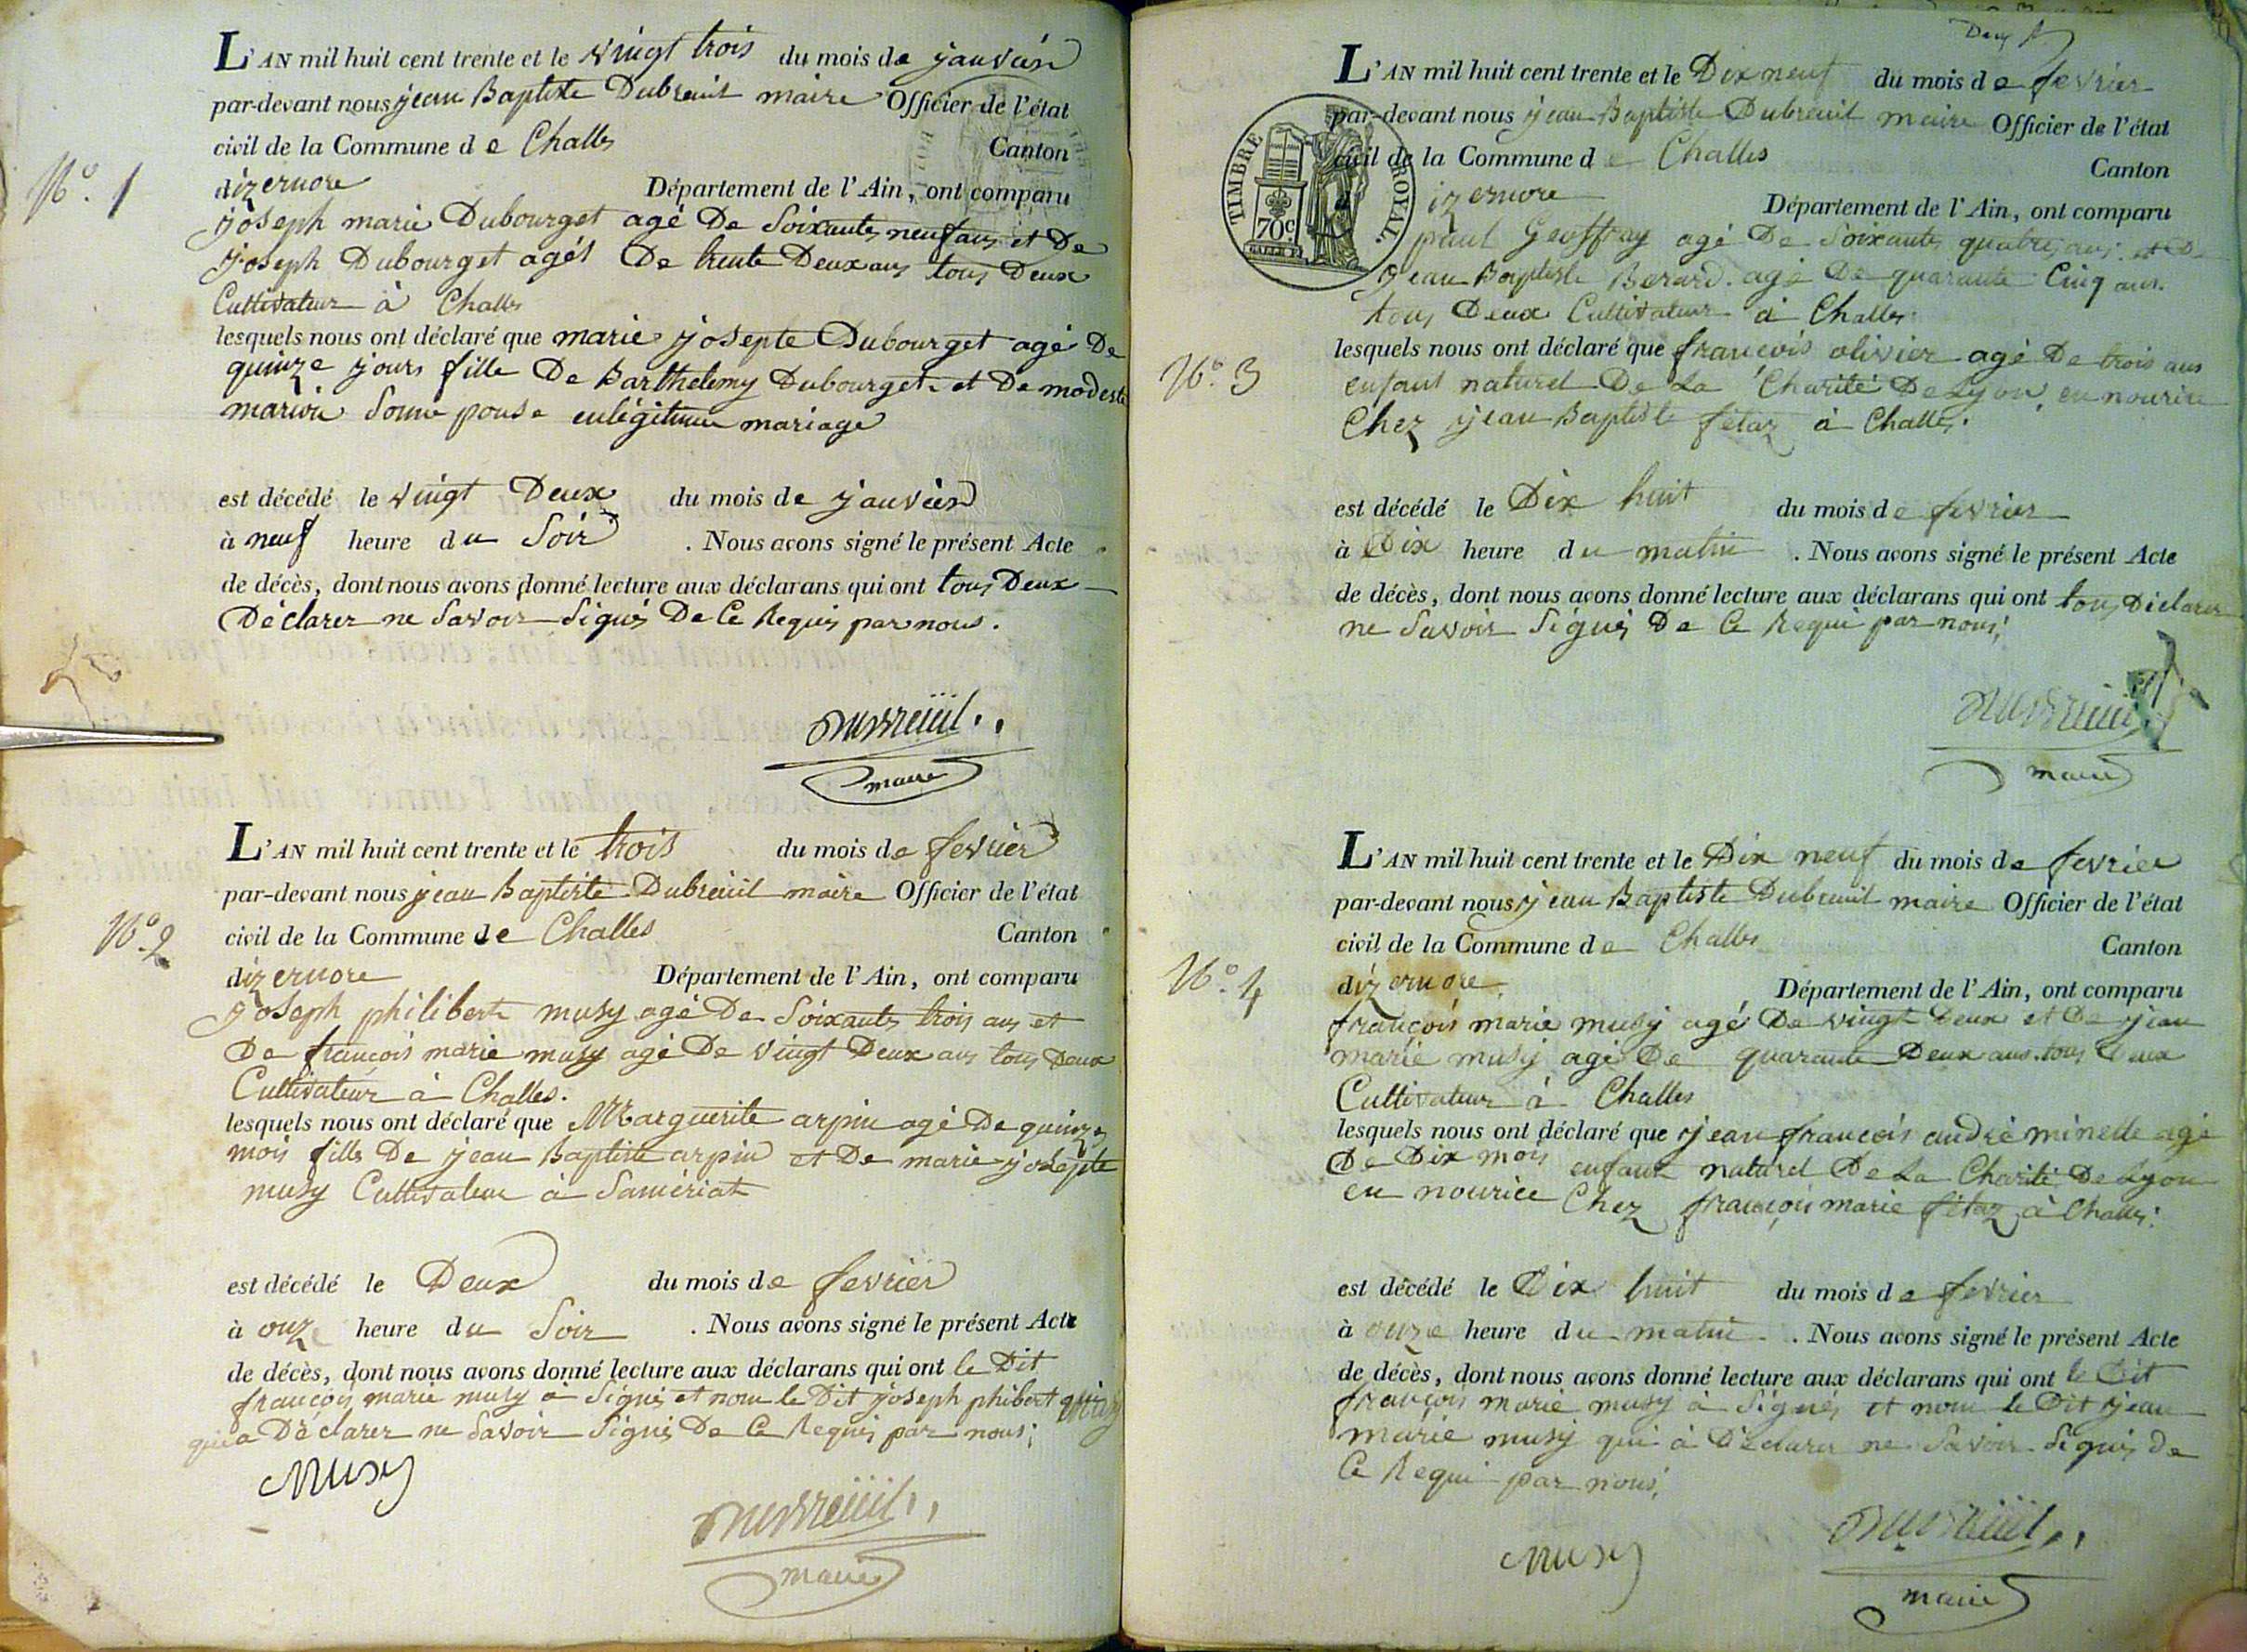 L'AN mil huit cent trente et le vingt trois du mois de janvier
par-devant nous jean Baptiste Dubreuil maire Officier de l'état
civil de la Commune de Challes Canton
dizernore Département de l'Ain, ont comparu
N.º 1
joseph marie Dubourget agé De Soixante neuf ans et De
joseph Dubourget agés De trente Deux ans tous Deux
Cultivateur à Challes
lesquels nous ont déclaré que marie josepte Dubourget agé De
quinze jours fille De Barthelemy Dubourget et De modeste
marion Sonne pouse enlégitime mariage
est décédé le vingt Deux du mois de janvier
à neuf heure du Soir . Nous avons signé le présent Acte
de décès, dont nous avons donné lecture aux déclarans qui ont tous Deux
Déclarer ne Savoir Signés De Ce Requis par nous.
Dubreüil
maire
L'AN mil huit cent trente et le trois du mois de fevrier
par-devant nous jean Baptiste Dubreüil maire Officier de l'état
N.º 2
civil de la Commune de Challes Canton
dizernore Département de l'Ain, ont comparu
joseph philibert musy agé De Soixante trois ans et
De francois marie musy agé De vingt Deux ans tous Deux
Cultivateur à Challes.
lesquels nous ont déclaré que Marguerite arpin agé De quinze
mois fille De jean Baptiste arpin et De marie josepte
musy Cultivateur à Samériat
est décédé le Deux du mois de fevrier
à onze heure du Soir . Nous avons signé le présent Acte
de décès, dont nous avons donné lecture aux déclarans qui ont le Dit
françois marie musy à Signés et nom le Dit joseph phibert
qui a Déclarer ne Savoir Signés De Ce Requis par nous;
Musy
Dubreüil
maire
Deux
L'AN mil huit cent trente et le Dix neuf du mois de fevrier
par-devant nous jean Baptiste Dubreuil maire Officier de l'état
civil de la Commune de Challes Canton
d izernore Département de l'Ain, ont comparu
TIMBRE ROYAL.
70c
paul Geoffray agé De Soixante quatre ans et De
jean Baptiste Berard agé De quarante Cinq ans.
tous Deux Cultivateur à Challes
N.º 3
lesquels nous ont déclaré que francois olivier agé De trois ans
enfant naturel De La Charité De Lyon en nourice
Chez jean Baptiste fétaz à Challes.
est décédé le Dix huit du mois de fevrier
à Dix heure du matin . Nous avons signé le présent Acte
de décès, dont nous avons donné lecture aux déclarans qui ont tous Déclarer
ne Savoir Signés De Ce Requi par nous;
Dubreüil
maire
L'AN mil huit cent trente et le Dix neuf du mois de fevrier
par-devant nous jean Baptiste Dubreuil maire Officier de l'état
civil de la Commune de Challes Canton
N.º 4
dizernore Département de l'Ain, ont comparu
françois marie musy agé De vingt Deux et De jean
marie musy agé De quarante Deux ans tous Deux
Cultivateur à Challes
lesquels nous ont déclaré que jean francois andré minelle agé
De Dix mois enfant naturel De La Charité De Lyon
en nourice Chez françois marie fétaz à Challes.
est décédé le Dix huit du mois de fevrier
à onze heure du matin . Nous avons signé le présent Acte
de décès, dont nous avons donné lecture aux déclarans qui ont le Dit
françois marie musy à Signés et nom le Dit jean
marie musy qui à Déclarer ne Savoir Signés De
Ce Requi par nous;
Musy
Dubreüil
maire